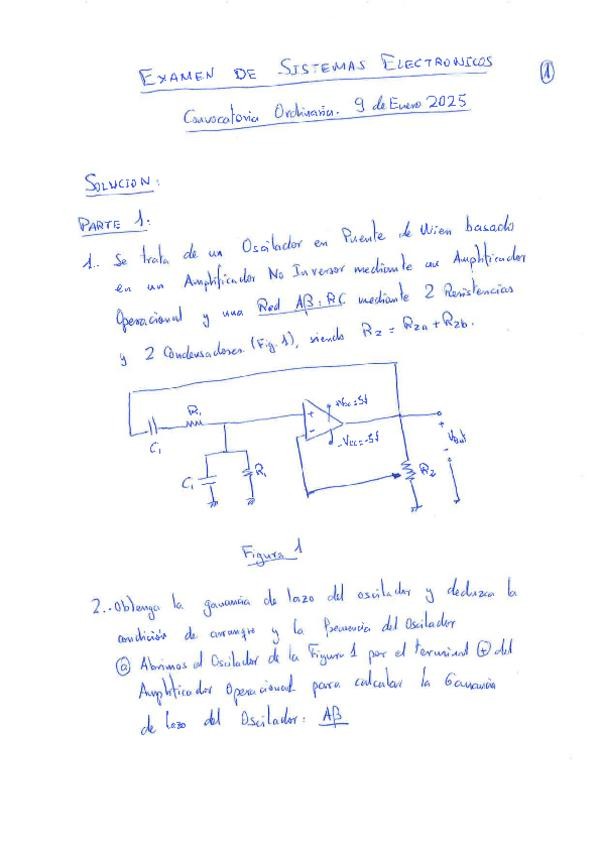 EXAMEN DE SISTEMAS ELECTRONICOS
1
Convocatoria Ordinaria. 9 de Enero 2025
SOLUCION:
PARTE 1:
1.. Se trata de un Oscilador en Puente de Wien basado
en un Amplificador No Inversor mediante un Amplificador
Operacional y una Red Aβ: RC mediante 2 Resistencias
y 2 Condensadores (Fig. 1), siendo R2 = R2a + R2b.
+Vcc=5V
R1
+
-
-Vcc=-5V
C1
+
Vout
-
C1
R1
R2
Figura 1
2.. Obtenga la ganancia de lazo del oscilador y deduzca la
condición de arranque y la frecuencia del Oscilador
a Abrimos el Oscilador de la Figura 1 por el terminal + del
Amplificador Operacional para calcular la Ganancia
de lazo del Oscilador: Aβ